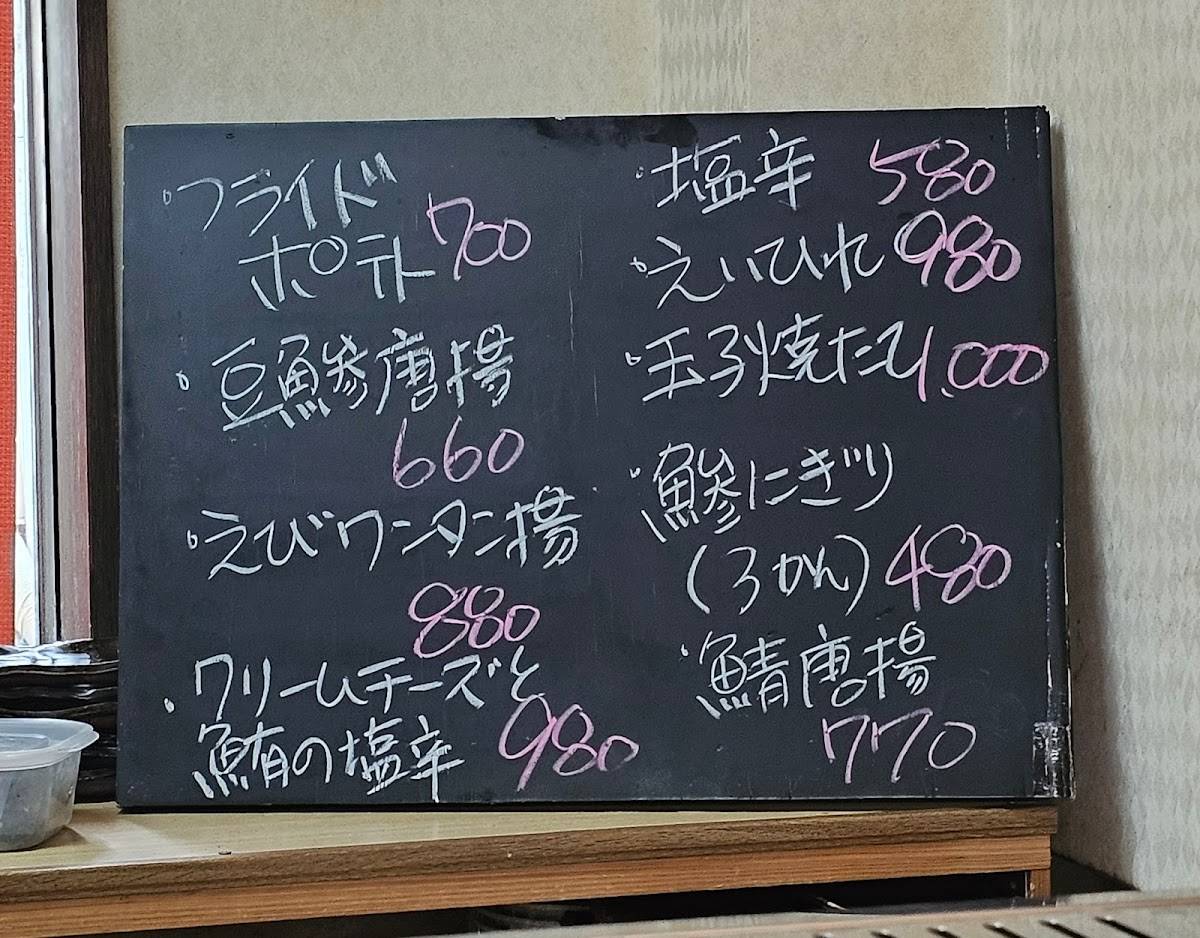 ・フライド
ポテト 700
・豆鯵唐揚
660
・えびワンタン揚
880
・クリームチーズと
鮪の塩辛 980
・塩辛 580
・えいひれ 980
・玉子焼たて 1,000
・鯵にぎり
(3かん) 480
・鯖唐揚
770